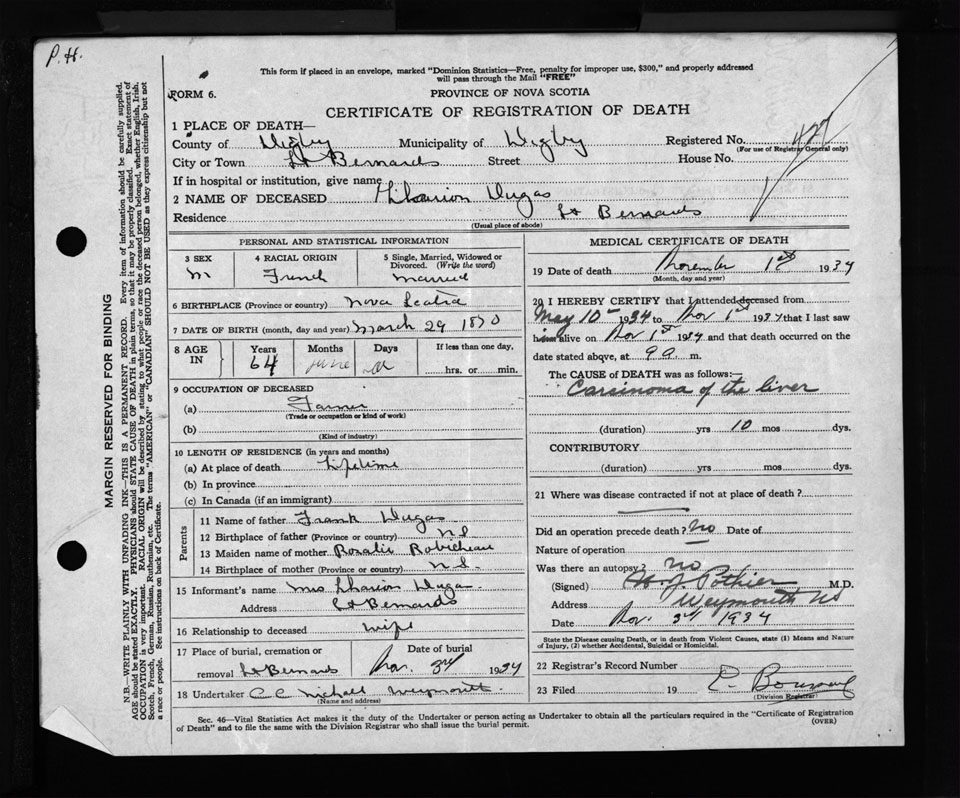 P. H.
This form if placed in an envelope, marked "Dominion Statistics—Free, penalty for improper use, $300," and properly addressed
will pass through the Mail "FREE"
FORM 6.
PROVINCE OF NOVA SCOTIA
CERTIFICATE OF REGISTRATION OF DEATH
1 PLACE OF DEATH—
County of Digby Municipality of Digby Registered No.
(For use of Registrar General only)
City or Town St Bernards Street House No.
If in hospital or institution, give name
2 NAME OF DECEASED Dugas
Residence St Bernards
(Usual place of abode)
PERSONAL AND STATISTICAL INFORMATION
3 SEX M
4 RACIAL ORIGIN French
5 Single, Married, Widowed or Divorced. (Write the word) Married
6 BIRTHPLACE (Province or country) Nova Scotia
7 DATE OF BIRTH (month, day and year) March 29 1870
8 AGE IN Years Months Days If less than one day,
64 hrs. or min.
9 OCCUPATION OF DECEASED
(a) Farmer
(Trade or occupation or kind of work)
(b)
(Kind of industry)
10 LENGTH OF RESIDENCE (in years and months)
(a) At place of death Lifetime
(b) In province
(c) In Canada (if an immigrant)
Parents
11 Name of father Frank Dugas
12 Birthplace of father (Province or country) N S
13 Maiden name of mother Rosalie Robicheau
14 Birthplace of mother (Province or country) N S.
15 Informant's name Mrs Dugas
Address St Bernards
16 Relationship to deceased wife
17 Place of burial, cremation or removal St Bernards
Date of burial Nov. 3rd 1934
18 Undertaker C C Weymouth.
(Name and address)
MEDICAL CERTIFICATE OF DEATH
19 Date of death November 1st 1934
(Month, day and year)
20 I HEREBY CERTIFY that I attended deceased from
May 10 1934 to Nov 1st 1934 that I last saw
him alive on Nov 1st 1934 and that death occurred on the
date stated above, at 9 a. m.
The CAUSE of DEATH was as follows:—
Carsinoma of the liver
(duration) yrs 10 mos dys.
CONTRIBUTORY
(duration) yrs mos dys.
21 Where was disease contracted if not at place of death?
Did an operation precede death? No Date of
Nature of operation
Was there an autopsy? No
(Signed) Pothier M.D.
Address Weymouth NS
Date Nov. 3rd 1934
State the Disease causing Death, or in death from Violent Causes, state (1) Means and Nature
of Injury, (2) whether Accidental, Suicidal or Homicidal.
22 Registrar's Record Number
23 Filed 19
(Division Registrar)
Sec. 46—Vital Statistics Act makes it the duty of the Undertaker or person acting as Undertaker to obtain all the particulars required in the "Certificate of Registration
of Death" and to file the same with the Division Registrar who shall issue the burial permit. (OVER)
MARGIN RESERVED FOR BINDING
N.B.—WRITE PLAINLY WITH UNFADING INK—THIS IS A PERMANENT RECORD. Every item of information should be carefully supplied.
AGE should be stated EXACTLY. PHYSICIANS should STATE CAUSE OF DEATH in plain terms, so that it may be properly classified. Exact statement of
OCCUPATION is very important. RACIAL ORIGIN will be described by stating to what people or race the deceased person belonged, whether English, Irish,
Scotch, French, German, Russian, Ruthenian, etc. The terms "AMERICAN" or "CANADIAN" SHOULD NOT BE USED as they express citizenship but not
a race or people. See instructions on back of Certificate.